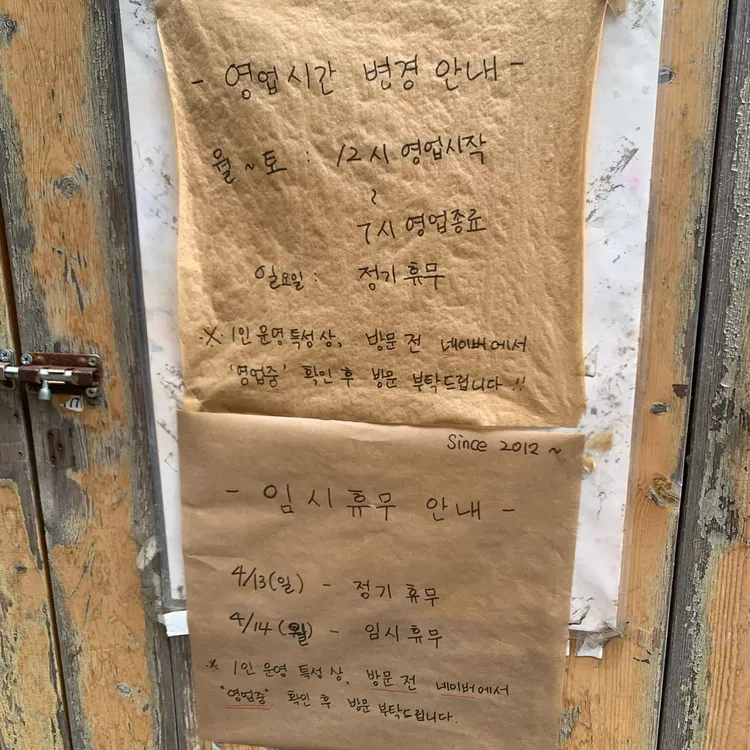 - 영업시간 변경 안내 -
월 ~ 토 : 12시 영업시작
~
7시 영업종료
일요일 : 정기 휴무
※ 1인 운영 특성상, 방문 전 네이버에서
'영업중' 확인 후 방문 부탁드립니다 !!
Since 2012 ~
- 임시휴무 안내 -
4/13(일) - 정기 휴무
4/14(월) - 임시 휴무
※ 1인 운영 특성상, 방문 전 네이버에서
"영업중" 확인 후 방문 부탁드립니다.
17